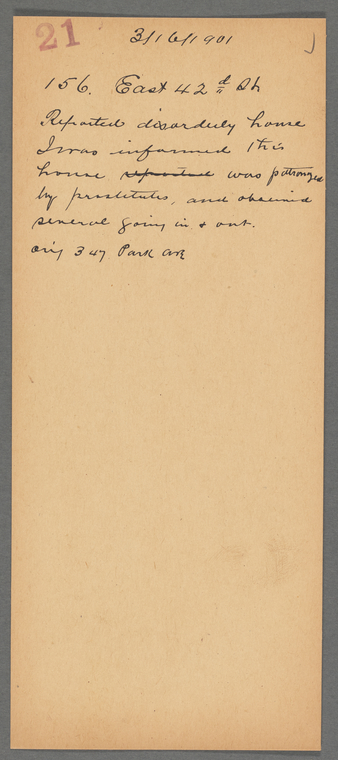 21
3/16/1901
156. East 42d St
Reported disorderly house
I was informed this
house reported was patronized
by prostitutes, and observed
several going in & out.
orig 347 Park Ave